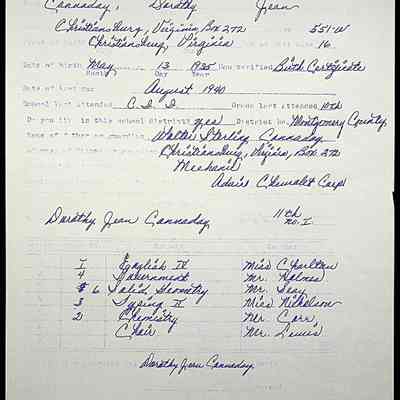 Cannaday, Dorothy Jean
Christiansburg, Virginia, Box 272 551-W
Christiansburg, Virginia 16
Date of birth May 13 1925 How verified Birth Certificate
Month Day Year
Date of last August 1940
School last attended C. I. I. Grade last attended 10th
Do you live in this school district? yes District No. Montgomery County
Name of father or guardian Walter Sterling Cannaday
Christiansburg, Virginia, Box 272
Mechanic
Adair Chevrolet Corp.
Dorothy Jean Cannaday 11th
no. I.
1 English IV Miss Charlton
4 Government Mr. Holmes
6 Solid Geometry Mr. Seay
3 Typing II Miss Nicholson
2 Chemistry Mr. Carr
Choir Mr. Lewis
Dorothy Jean Cannaday